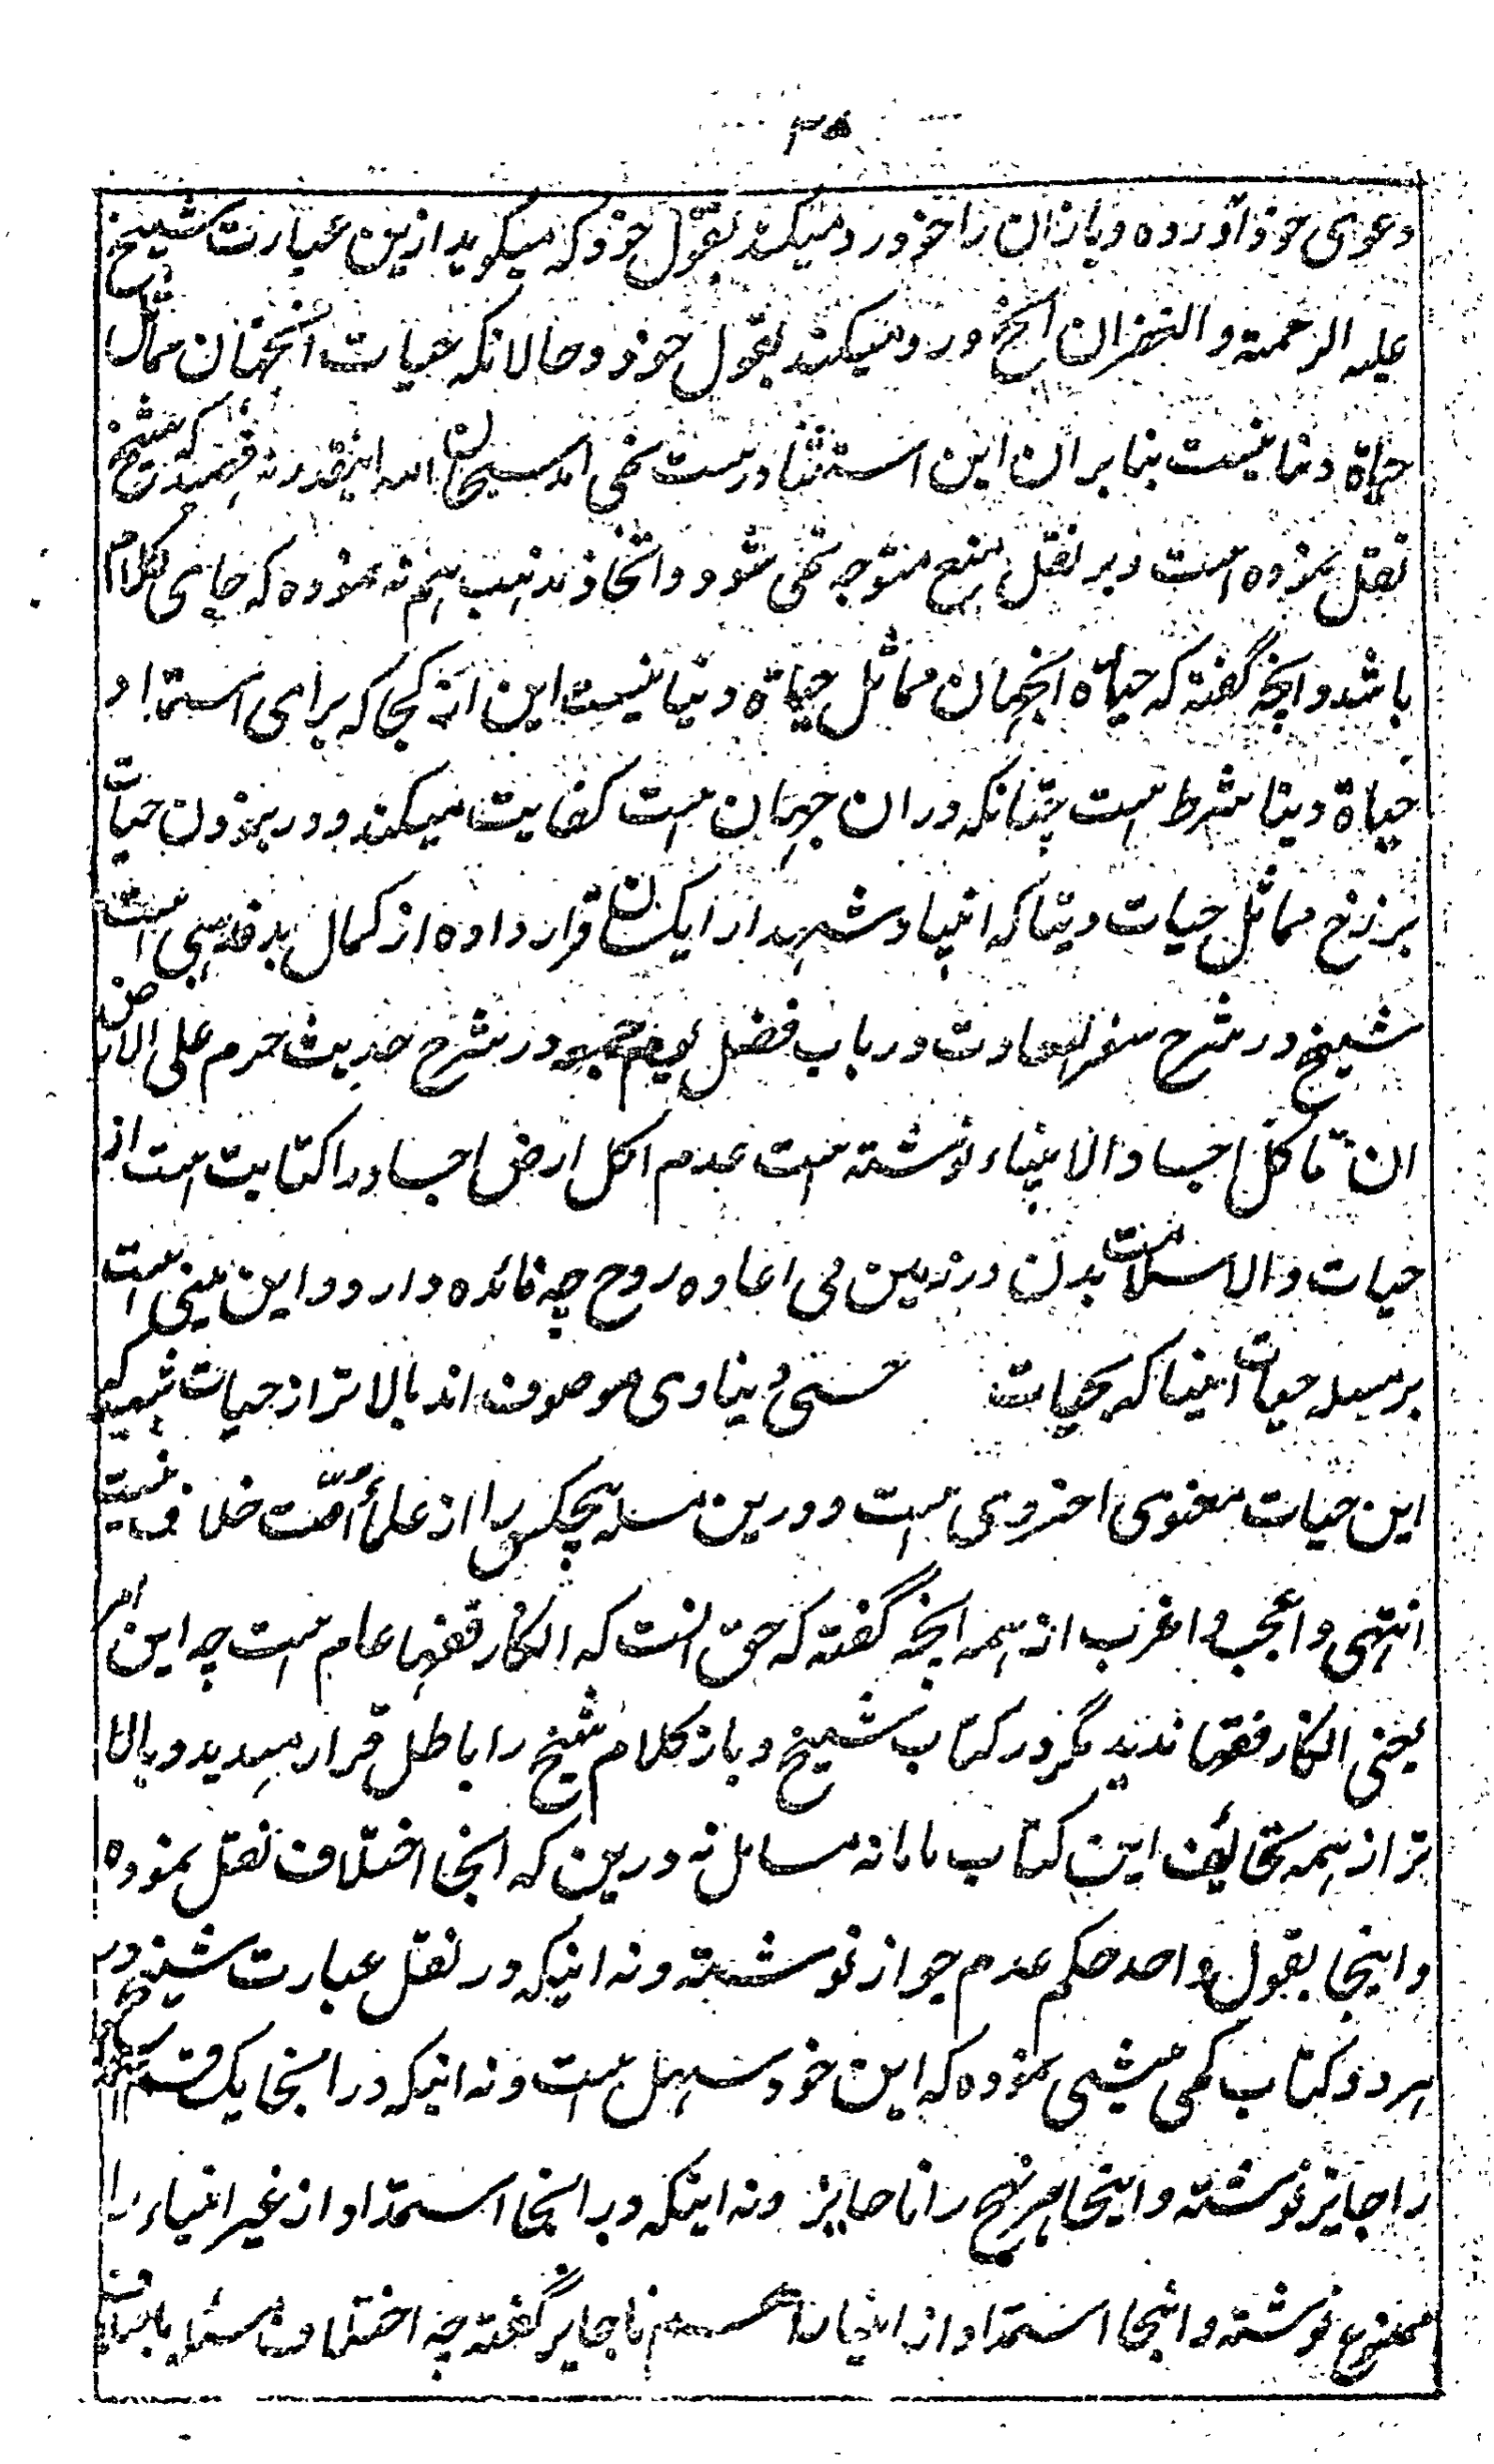 ۳۵
دعوی خود آورده و باز ان را خود رد میکند بقول خود که میگوید ازین عبارت شیخ
علیه الرحمة و الغفران الخ و رد میکند بقول خود و حالانکه حیات آنجهان مماثل
حیاة دنیا نیست بنا بران این استثنا درست نمی اید سبحان الله اینقدر نه فهمید که شیخ
نقل نموده است و بر نقل منع متوجه نمی شود و اتخاذ مذهب هم نه نموده که جای کلام
باشد و انچه گفته که حیاة انجهان مماثل حیاة دنیا نیست این از کجا که برای استمداد
حیاة دنیا شرط است چنانکه دران جهان است کفایت میکند و در نمودن حیات
برزخ مماثل حیات دنیا که انبیا و شهدا را یکسان قرار داده از کمال بدمذهبی است
شیخ در شرح سفر السعادت در باب فضل یوم جمعه در شرح حدیث حرم علی الارض
ان تاکل اجساد الانبیاء نوشته است عدم اکل ارض اجساد را کنایت است از
حیات و الا سلامت بدن در زمین بی اعاده روح چه فائده دارد و این مبنی است
بر مسله حیات انبیا که بحیات حسی دنیاوی موصوف اند بالاتر از حیات شهدا که
این حیات معنوی اخروی است و درین مسله هیچکس را از علمأ امّت خلاف نیست
انتهی و اعجب و اغرب از همه انچه گفته که حق انست که انکار فقها عام است چه این امر
یعنی انکار فقها ندید مگر در کتاب شیخ و باز کلام شیخ را باطل قرار میدید و بالا
تر از همه تخالیف این کتاب با مأته مسائل نه درین که انجا اختلاف نقل نموده
و اینجا بقول واحد حکم عدم جواز نوشته و نه اینکه در نقل عبارت شیخ در
هر دو کتاب کمی بیشی نموده که این خود سهل است و نه اینکه در انجا یک قسم
را جایز نوشته و اینجا هر نهج را ناجایز و نه اینکه در انجا استمداد از غیر انبیاء را
ممنوع نوشته و اینجا استمداد از انبیا را هم ناجایز گفته چه اختلاف مسئله